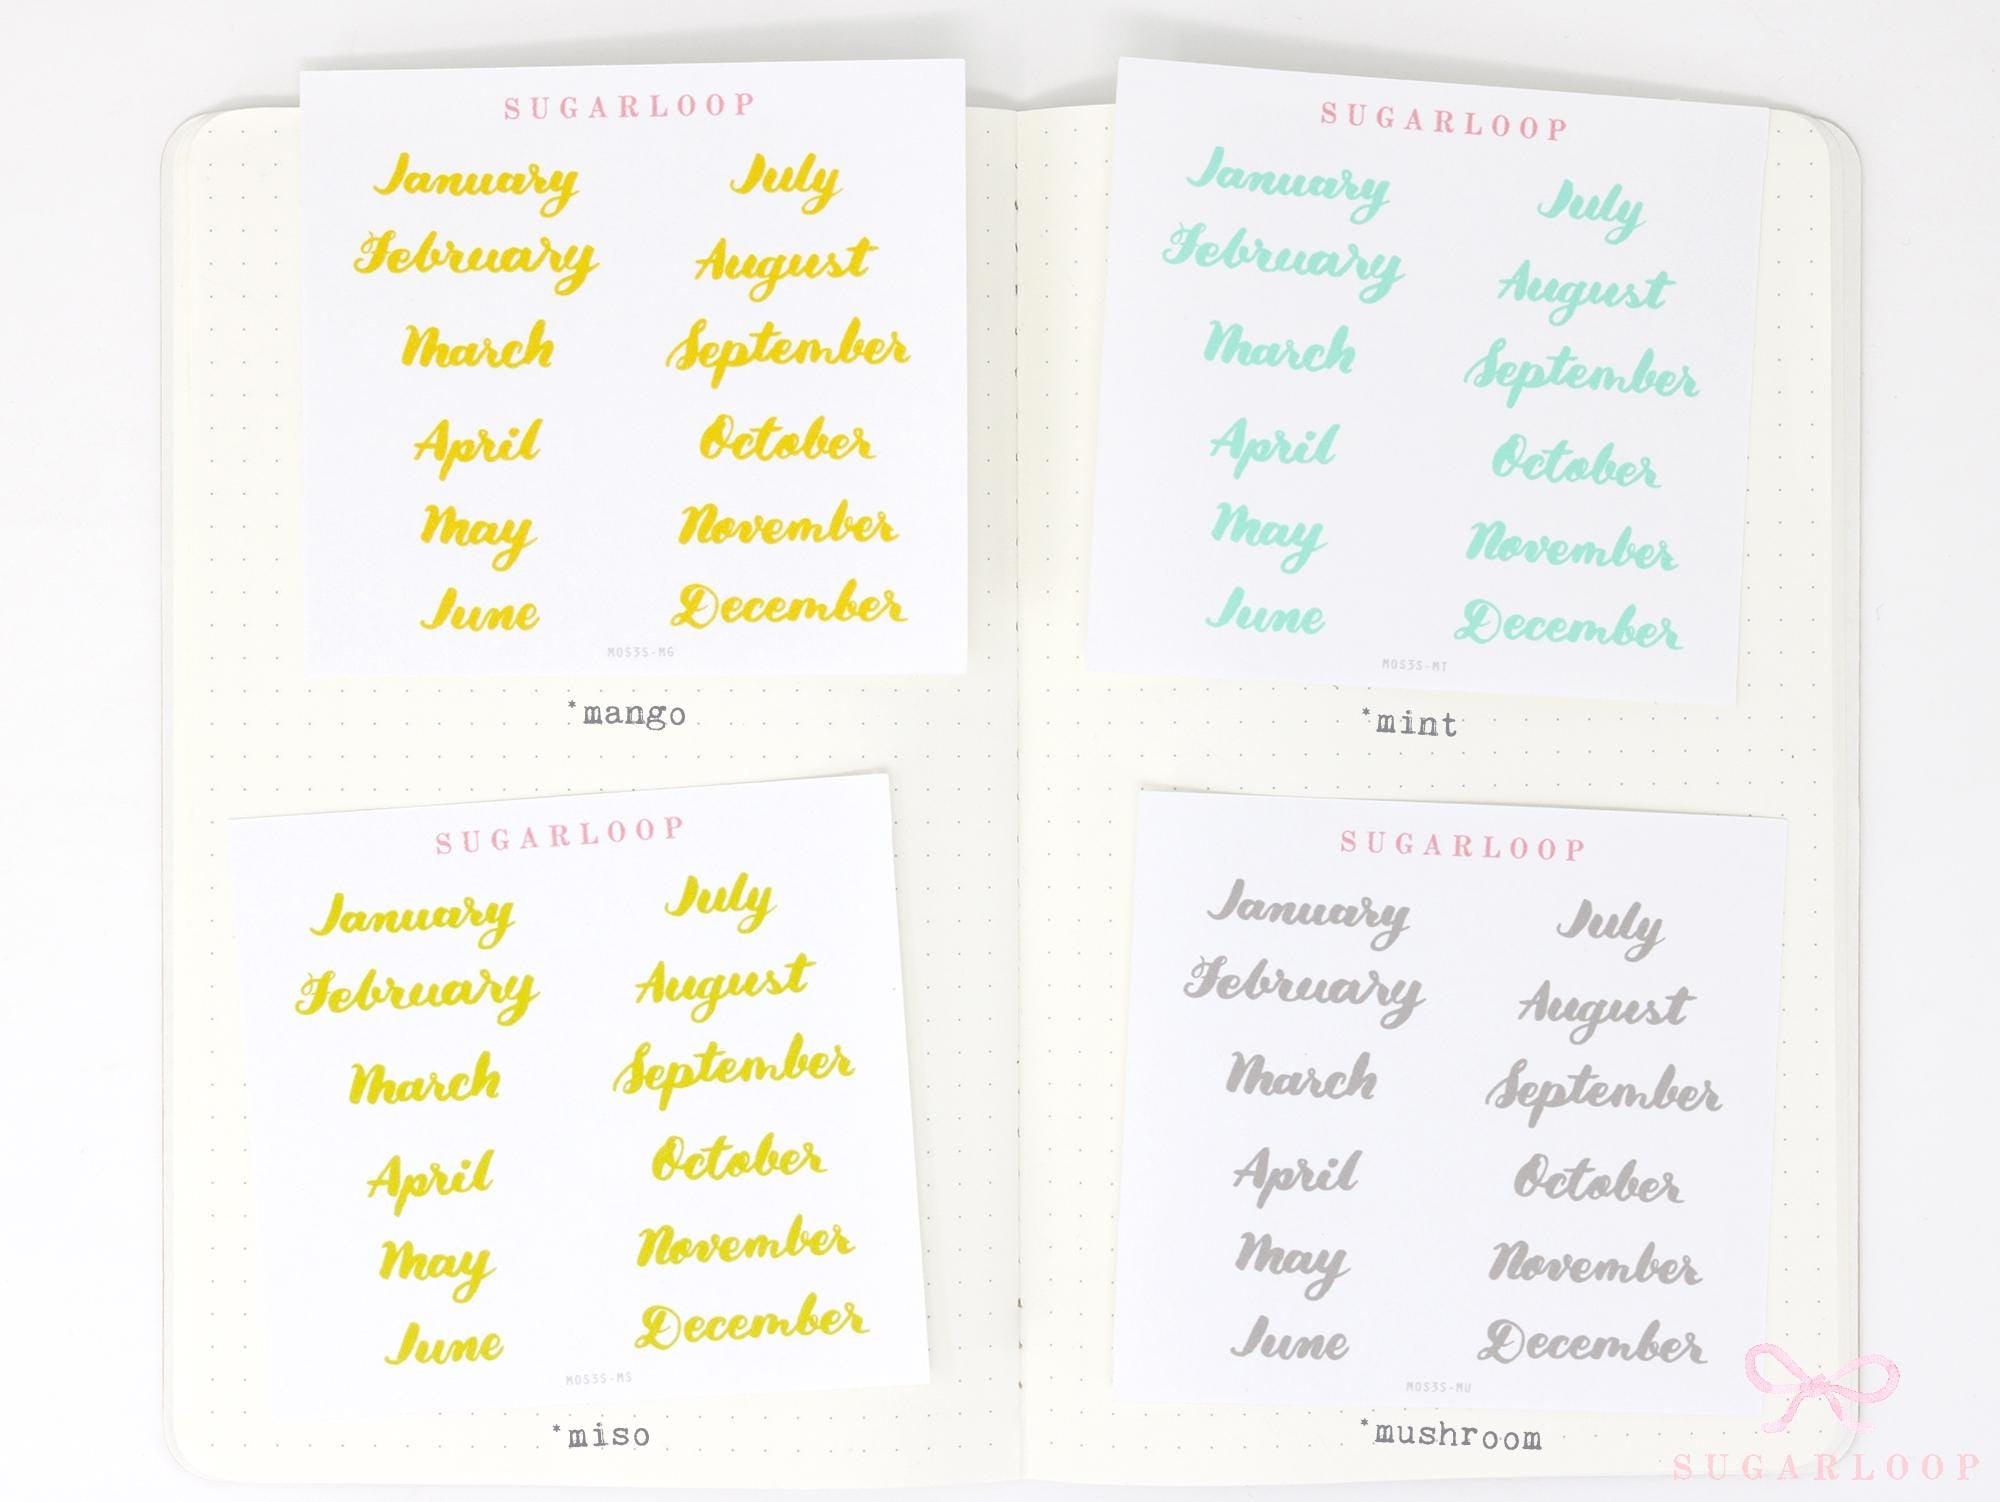 SUGARLOOP
January
February
March
April
May
June
July
August
September
October
November
December
MOS3S-MG
*mango
SUGARLOOP
January
February
March
April
May
June
July
August
September
October
November
December
MOS3S-MT
*mint
SUGARLOOP
January
February
March
April
May
June
July
August
September
October
November
December
MOS3S-MS
*miso
SUGARLOOP
January
February
March
April
May
June
July
August
September
October
November
December
MOS3S-MU
*mushroom
SUGARLOOP